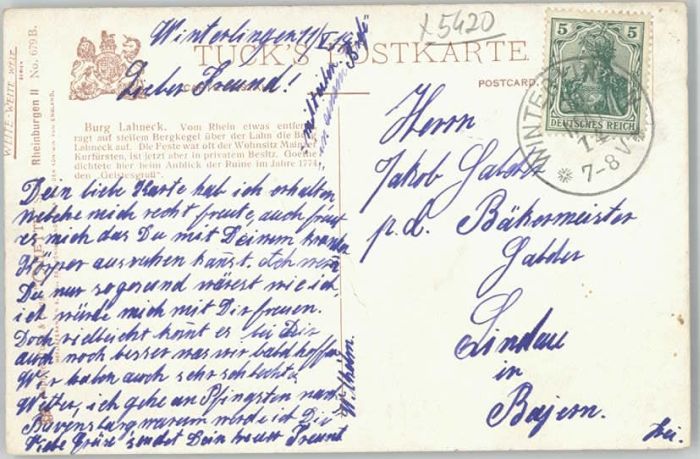 x5420
Winterlingen 11/V.
TUCK'S POSTKARTE
POSTCARD.
Lieber Freund!
WEITE-WEITE WELT
BERLIN
Rheinburgen II No. 679 B.
Burg Lahneck. Vom Rhein etwas entfernt
ragt auf steilem Bergkegel über der Lahn die Burg
Lahneck auf. Die Feste war oft der Wohnsitz Mainzer
Kurfürsten, ist jetzt aber in privatem Besitz. Goethe
dichtete hier beim Anblick der Ruine im Jahre 1774
den „Geistesgruß“.
Dein liebe Karte hab ich erhalten
welche mich recht freute, auch freut
es mich das Du mit Deinem kranken
Körper ausruhen kannst. Ich wenn
Du nur so gesund wärest wie ich
ich würde mich mit Dir freuen.
Doch vielleicht kannt es bei Dir
auch noch besser was wir bald hoffen
Wir haben auch sehr schlechtes
Wetter, ich gehe an Pfingsten nach
Ravensburg warum werde ich Dir
Viele Grüße sendet Dein treuer Freund
Wilhelm.
mitteilen
Brief
5 5
DEUTSCHES REICH
WINTERLINGEN
7-8 V
Herrn
Jakob
p. d. Bäkermeister
Lindau
in
Bajern.